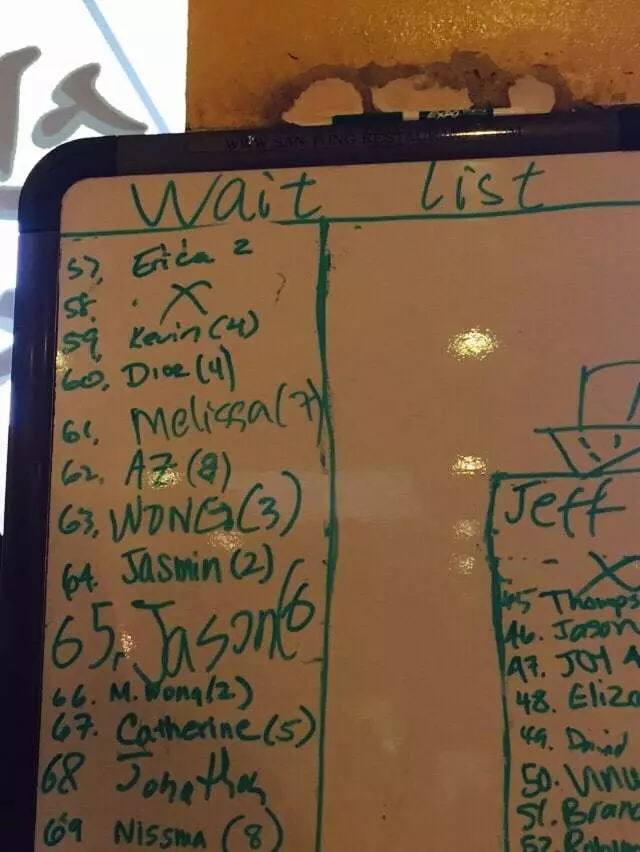 EXPO
WWW.SAN TUNG RESTAURANT
Wait List
57. Erica 2
58. X
59. Kevin (4)
60. Dioe (4)
61. Melissa (7)
62. AZ (8)
63. WONG (3)
64. Jasmin (2)
65. Jason (6
66. M. Wong (2)
67. Catherine (5)
68 Jonathan
69 Nissma (8)
Jeff
X
45 Thomps
46. Jason
47. JOY A
48. Eliza
49. David
50. Vinu
51. Brand
52. Robyn